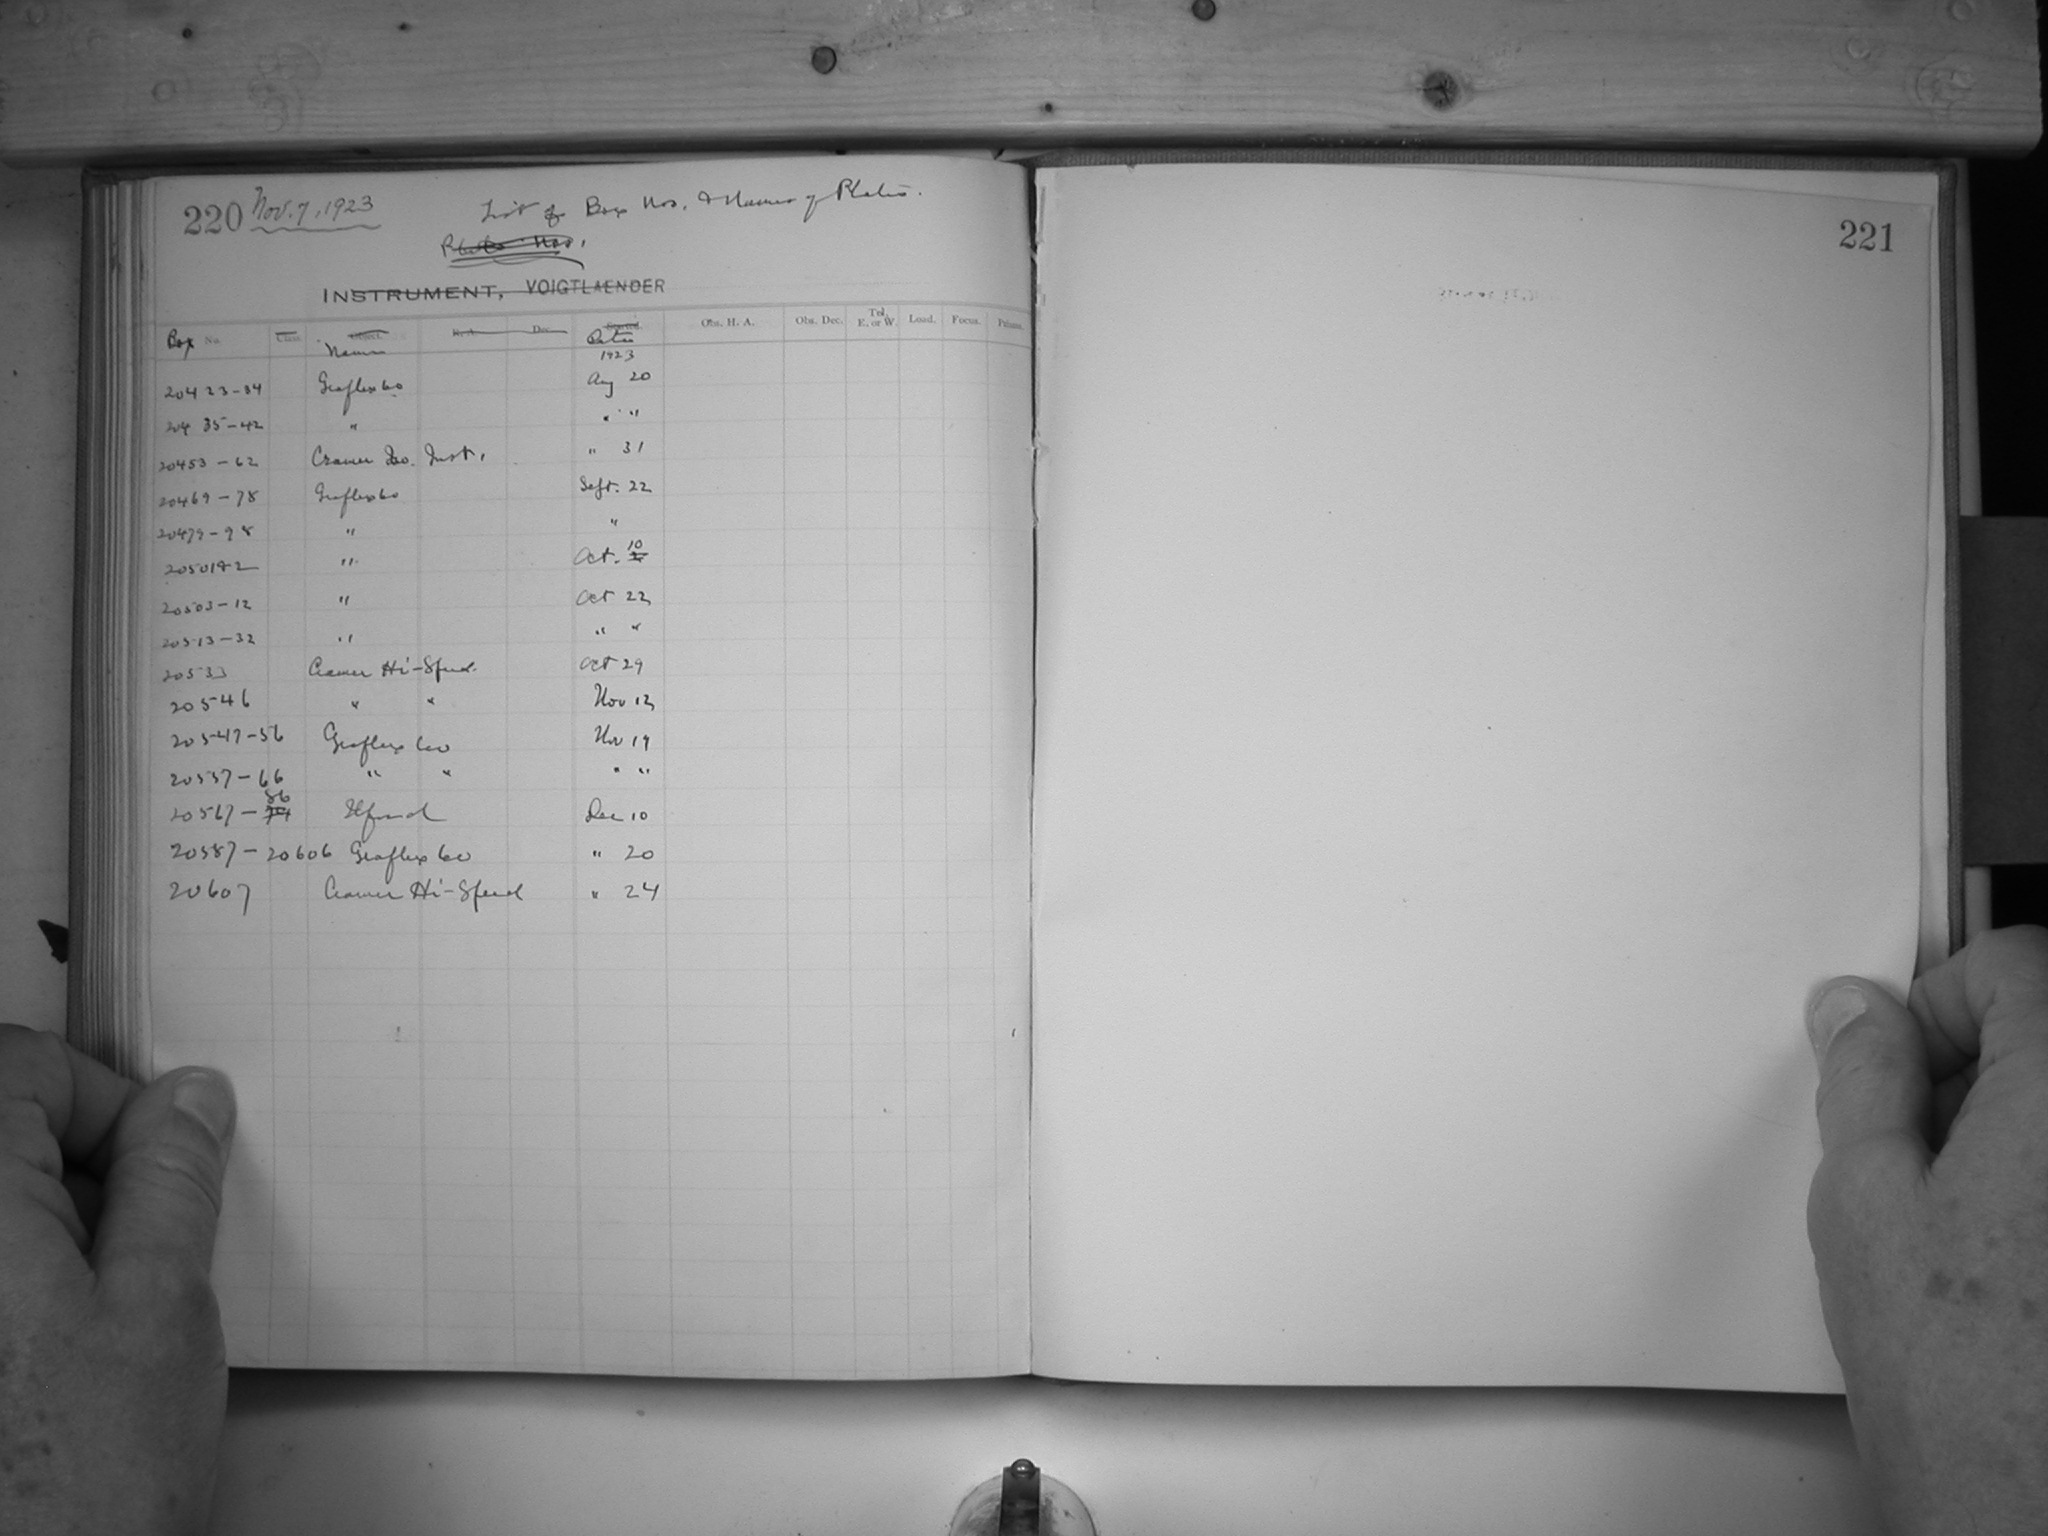 220 Nov. 7, 1923 List of Box Nos. & Names of Plates.
Plate Nos.
INSTRUMENT, VOIGTLAENDER
Box No. Class. Object. R. A. Dec. Started. Obs. H. A. Obs. Dec. Tel. E. or W. Load. Focus. Prisms.
Name Date
1923
20423-34 Graflex 60 Aug 20
20435-42 " " "
20453-62 Cramer Iso. Inst. " 31
20469-78 Graflex 60 Sept. 22
20479-98 " "
20501&2 " Oct. 10
20503-12 " Oct 22
20513-32 " " "
20533 Cramer Hi-Speed Oct 29
20546 " " Nov 12
20547-56 Graflex 60 Nov 19
20557-66 " " " "
20567-86 Ilford Dec 10
20587-20606 Graflex 60 " 20
20607 Cramer Hi-Speed " 24
221